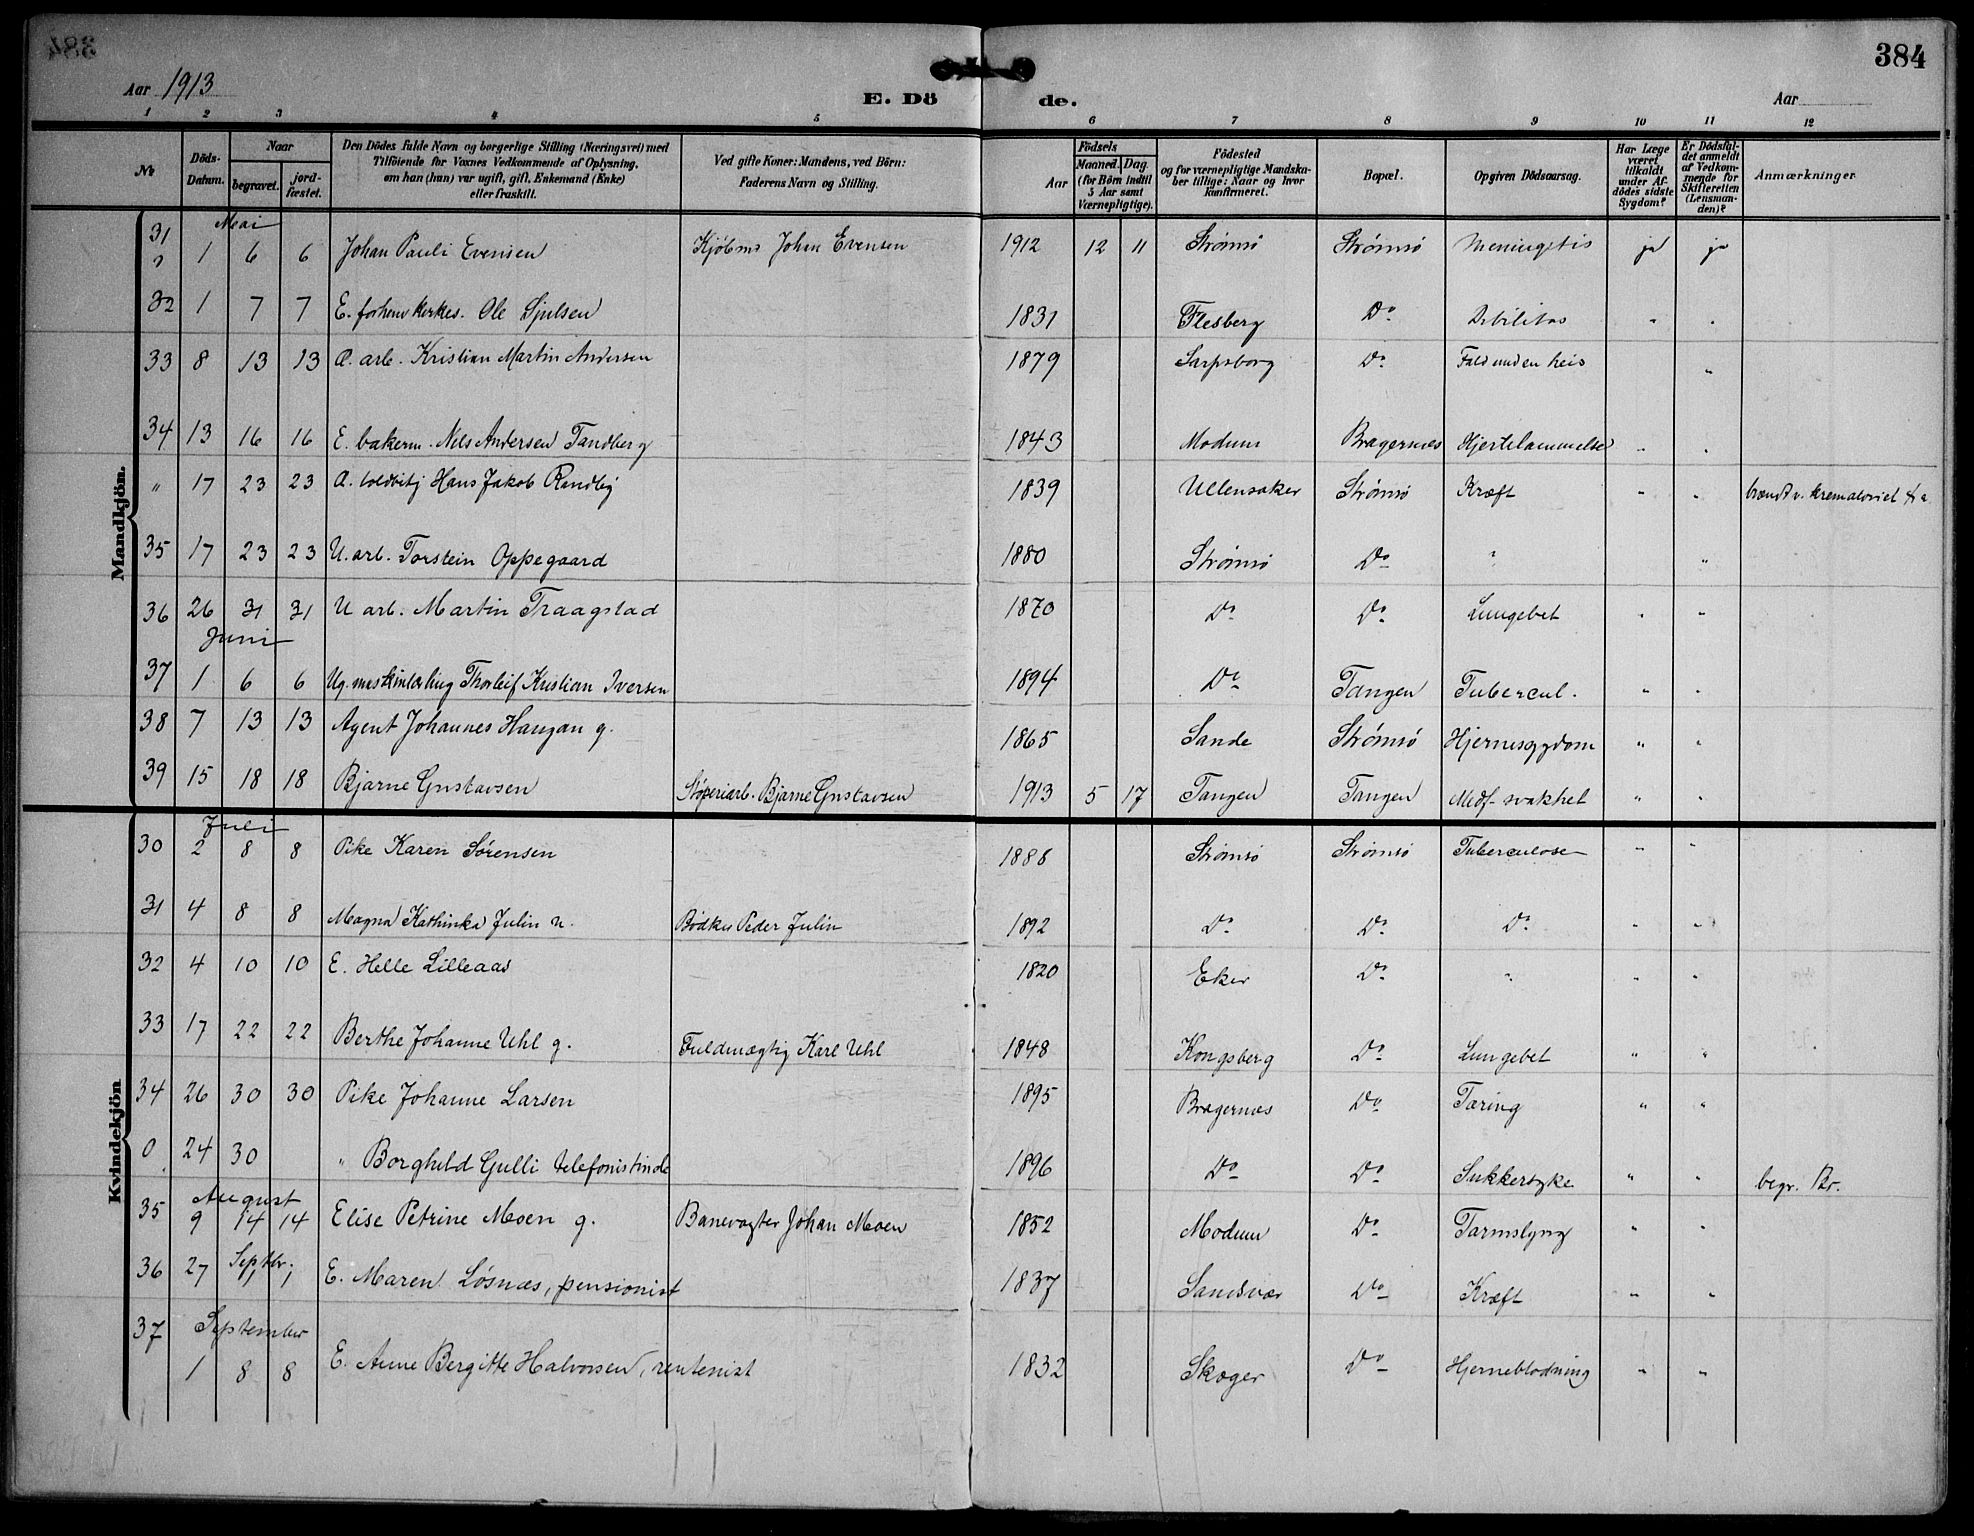 384
Aar 1913
E. Dö de.
Aar
1 2 3 4 5 6 7 8 9 10 11 12
No
Döds-Datum.
Naar
begravet.
jord-fæstet.
Den Dödes fulde Navn og borgerlige Stilling (Næringsvei) med
Tilföiende for Voxnes Vedkommende af Oplysning,
om han (hun) var ugift, gift, Enkemand (Enke)
eller fraskilt.
Ved gifte Koner: Mandens, ved Börn:
Faderens Navn og Stilling.
Födsels
Aar
Maaned. Dag.
(for Börn indtil
5 Aar samt
Værnepligtige).
Födested
og for værnepligtige Mandska-
ber tillige: Naar og hvor
konfirmeret.
Bopæl.
Opgiven Dödsaarsag.
Har Læge
været
tilkaldt
under Af-
dödes sidste
Sygdom?
Er Dödsfal-
det anmeldt
af Vedkom-
mende for
Skifteretten
(Lensman-
den)?
Anmærkninger
Mandkjön.
Mai
31 1 6 6 Johan Pauli Evensen Kjøbm Johan Evensen 1912 12 11 Strømsø Strømsø Meningetis ja ja
32 1 7 7 E. forhenv kirkes. Ole Sjulsen 1831 Flesberg Do Debilitas " "
33 8 13 13 A. arb. Kristian Martin Andersen 1879 Sarpsborg Do Fald under heis "
34 13 16 16 E. bakerm. Nels Andersen Tandberg 1843 Modum Bragernes Hjertelammelse " "
" 17 23 23 A. toldbetj Hans Jakob Rundbej 1839 Ullensaker Strømsø Kræft " " brændt v. krematoriet
35 17 23 23 U. arb. Torstein Oppegaard 1880 Strømsø Do " "
36 26 31 31 U arb. Martin Traagstad 1870 Do Do Lungebet " "
Juni
37 1 6 6 Ug. maskinlærling Thorleif Kristian Iversen 1894 Do Tangen Tubercul. " "
38 7 13 13 Agent Johannes Haugan g. 1865 Sande Strømsø Hjernesygdom " "
39 15 18 18 Bjarne Gustavsen Støperiarb. Bjarne Gustavsen 1913 5 17 Tangen Tangen Medf. svakhet " "
Kvindekjön
Juli
30 2 8 8 Pike Karen Sørensen 1886 Strømsø Strømsø Tuberculose " "
31 4 8 8 Magna Kathinka Julin u. Bødker Peder Julin 1892 Do Do Do " "
32 4 10 10 E. Helle Lilleaas 1820 Eker Do " " "
33 17 22 22 Berthe Johanne Uhl g. Fuldmægtig Karl Uhl 1848 Kongsberg Do Lungebet " "
34 26 30 30 Pike Johanne Larsen 1895 Bragernes Do Tæring " "
0 24 30 " Borghild Gulli telefonistinde 1896 Do Do Sukkersyke " " begr. Br.
August
35 9 14 14 Elise Petrine Moen g. Banevogter Johan Moen 1852 Modum Do Tarmslyng " "
Septbr.
36 27 1 1 E. Maren Løsnæs, pensionist 1837 Sandsvær Do Kræft " "
September
37 1 8 8 E. Anne Bergitte Halvorsen, rentenist 1832 Skoger Do Hjerneblødning " "